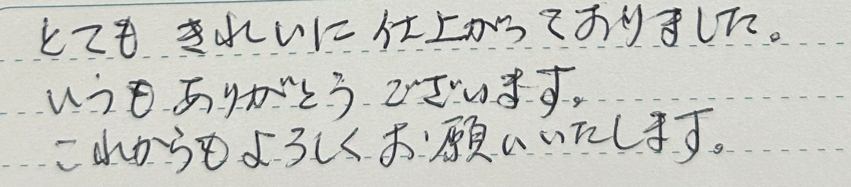 とてもきれいに仕上がっておりました。
いつもありがとうございます。
これからもよろしくお願いいたします。